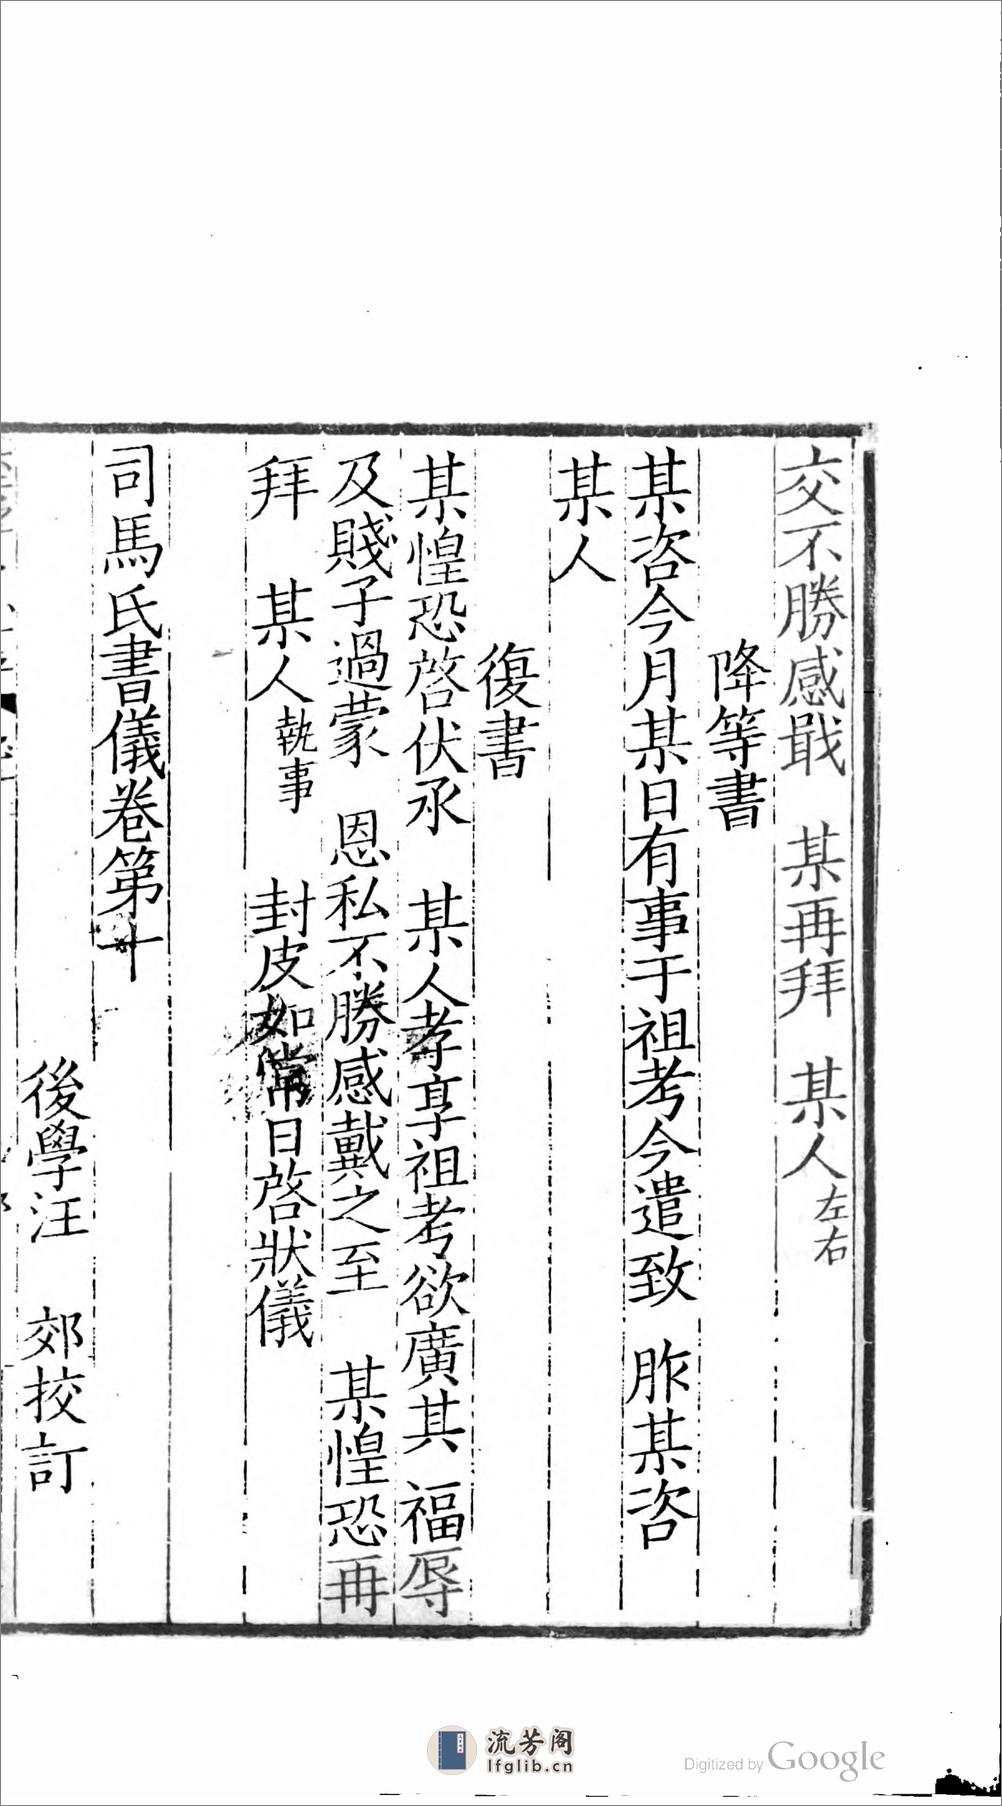 交不勝感戢　某再拜　某人左右
降等書
某咨今月某日有事于祖考今遣致　胙某咨
某人
復書
某惶恐啓伏承　某人孝享祖考欲廣其　福辱
及賤子過蒙　恩私不勝感戴之至　某惶恐再
拜　某人執事　封皮如常日啓狀儀
司馬氏書儀卷第十
後學汪　郊挍訂
流芳阁
lfglib.cn
Digitized by Google